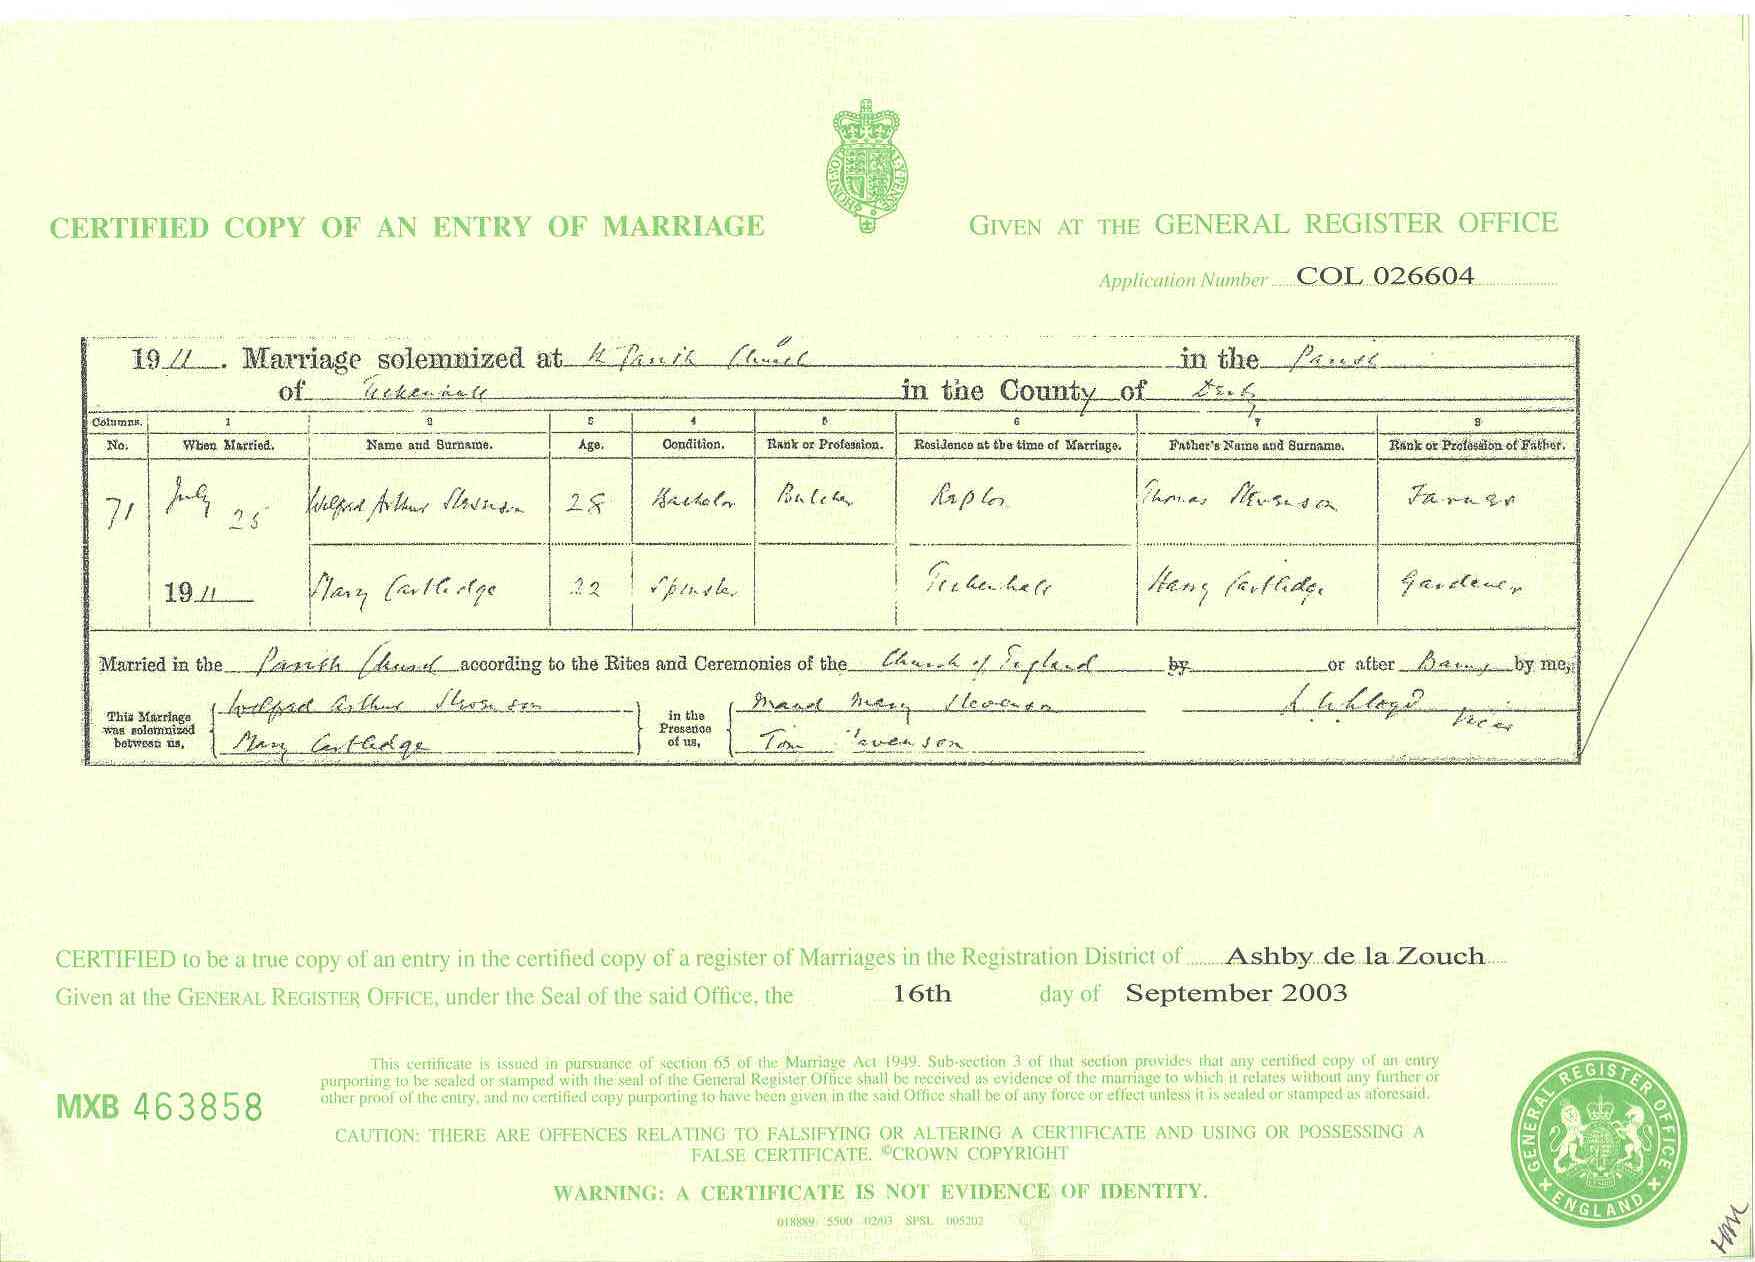 CERTIFIED COPY OF AN ENTRY OF MARRIAGE
GIVEN AT THE GENERAL REGISTER OFFICE
Application Number COL 026604
1911. Marriage solemnized at Parish Church in the Parish
of Tickenhall in the County of Derby
Columns. 1 2 3 4 5 6 7 8
No. When Married. Name and Surname. Age. Condition. Rank or Profession. Residence at the time of Marriage. Father's Name and Surname. Rank or Profession of Father.
71 July 25 Wilfred Arthur Stevenson 28 Bachelor Butcher Thomas Stevenson Farmer
1911 Mary Cartledge 22 Spinster Tickenhall Harry Cartledge Gardener
Married in the Parish Church according to the Rites and Ceremonies of the Church of England by or after Banns by me,
This Marriage was solemnized between us, Wilfred Arthur Stevenson in the Presence of us, Maud Mary Stevenson Lloyd Vicar
Mary Cartledge Tom Stevenson
CERTIFIED to be a true copy of an entry in the certified copy of a register of Marriages in the Registration District of Ashby de la Zouch
Given at the GENERAL REGISTER OFFICE, under the Seal of the said Office, the 16th day of September 2003
This certificate is issued in pursuance of section 65 of the Marriage Act 1949. Sub-section 3 of that section provides that any certified copy of an entry
purporting to be sealed or stamped with the seal of the General Register Office shall be received as evidence of the marriage to which it relates without any further or
other proof of the entry, and no certified copy purporting to have been given in the said Office shall be of any force or effect unless it is sealed or stamped as aforesaid.
MXB 463858
CAUTION: THERE ARE OFFENCES RELATING TO FALSIFYING OR ALTERING A CERTIFICATE AND USING OR POSSESSING A
FALSE CERTIFICATE. ©CROWN COPYRIGHT
WARNING: A CERTIFICATE IS NOT EVIDENCE OF IDENTITY.
018889 5500 02/03 SPSL 005202
GENERAL REGISTER OFFICE
ENGLAND